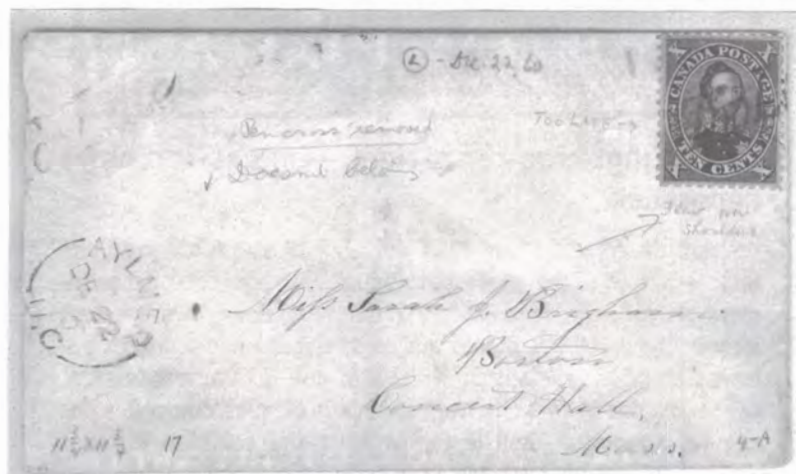 L - Dec. 22, 60
CANADA POSTAGE
TEN CENTS
Too Late →
Pen cross removed
Doesn't belong
Flaw over
shoulder
AYLMER
DE
22
U.C
Miss Sarah J. Brigham.
Boston
Concert Hall,
Mass.
11 3/4 x 11 3/4
17
4-A